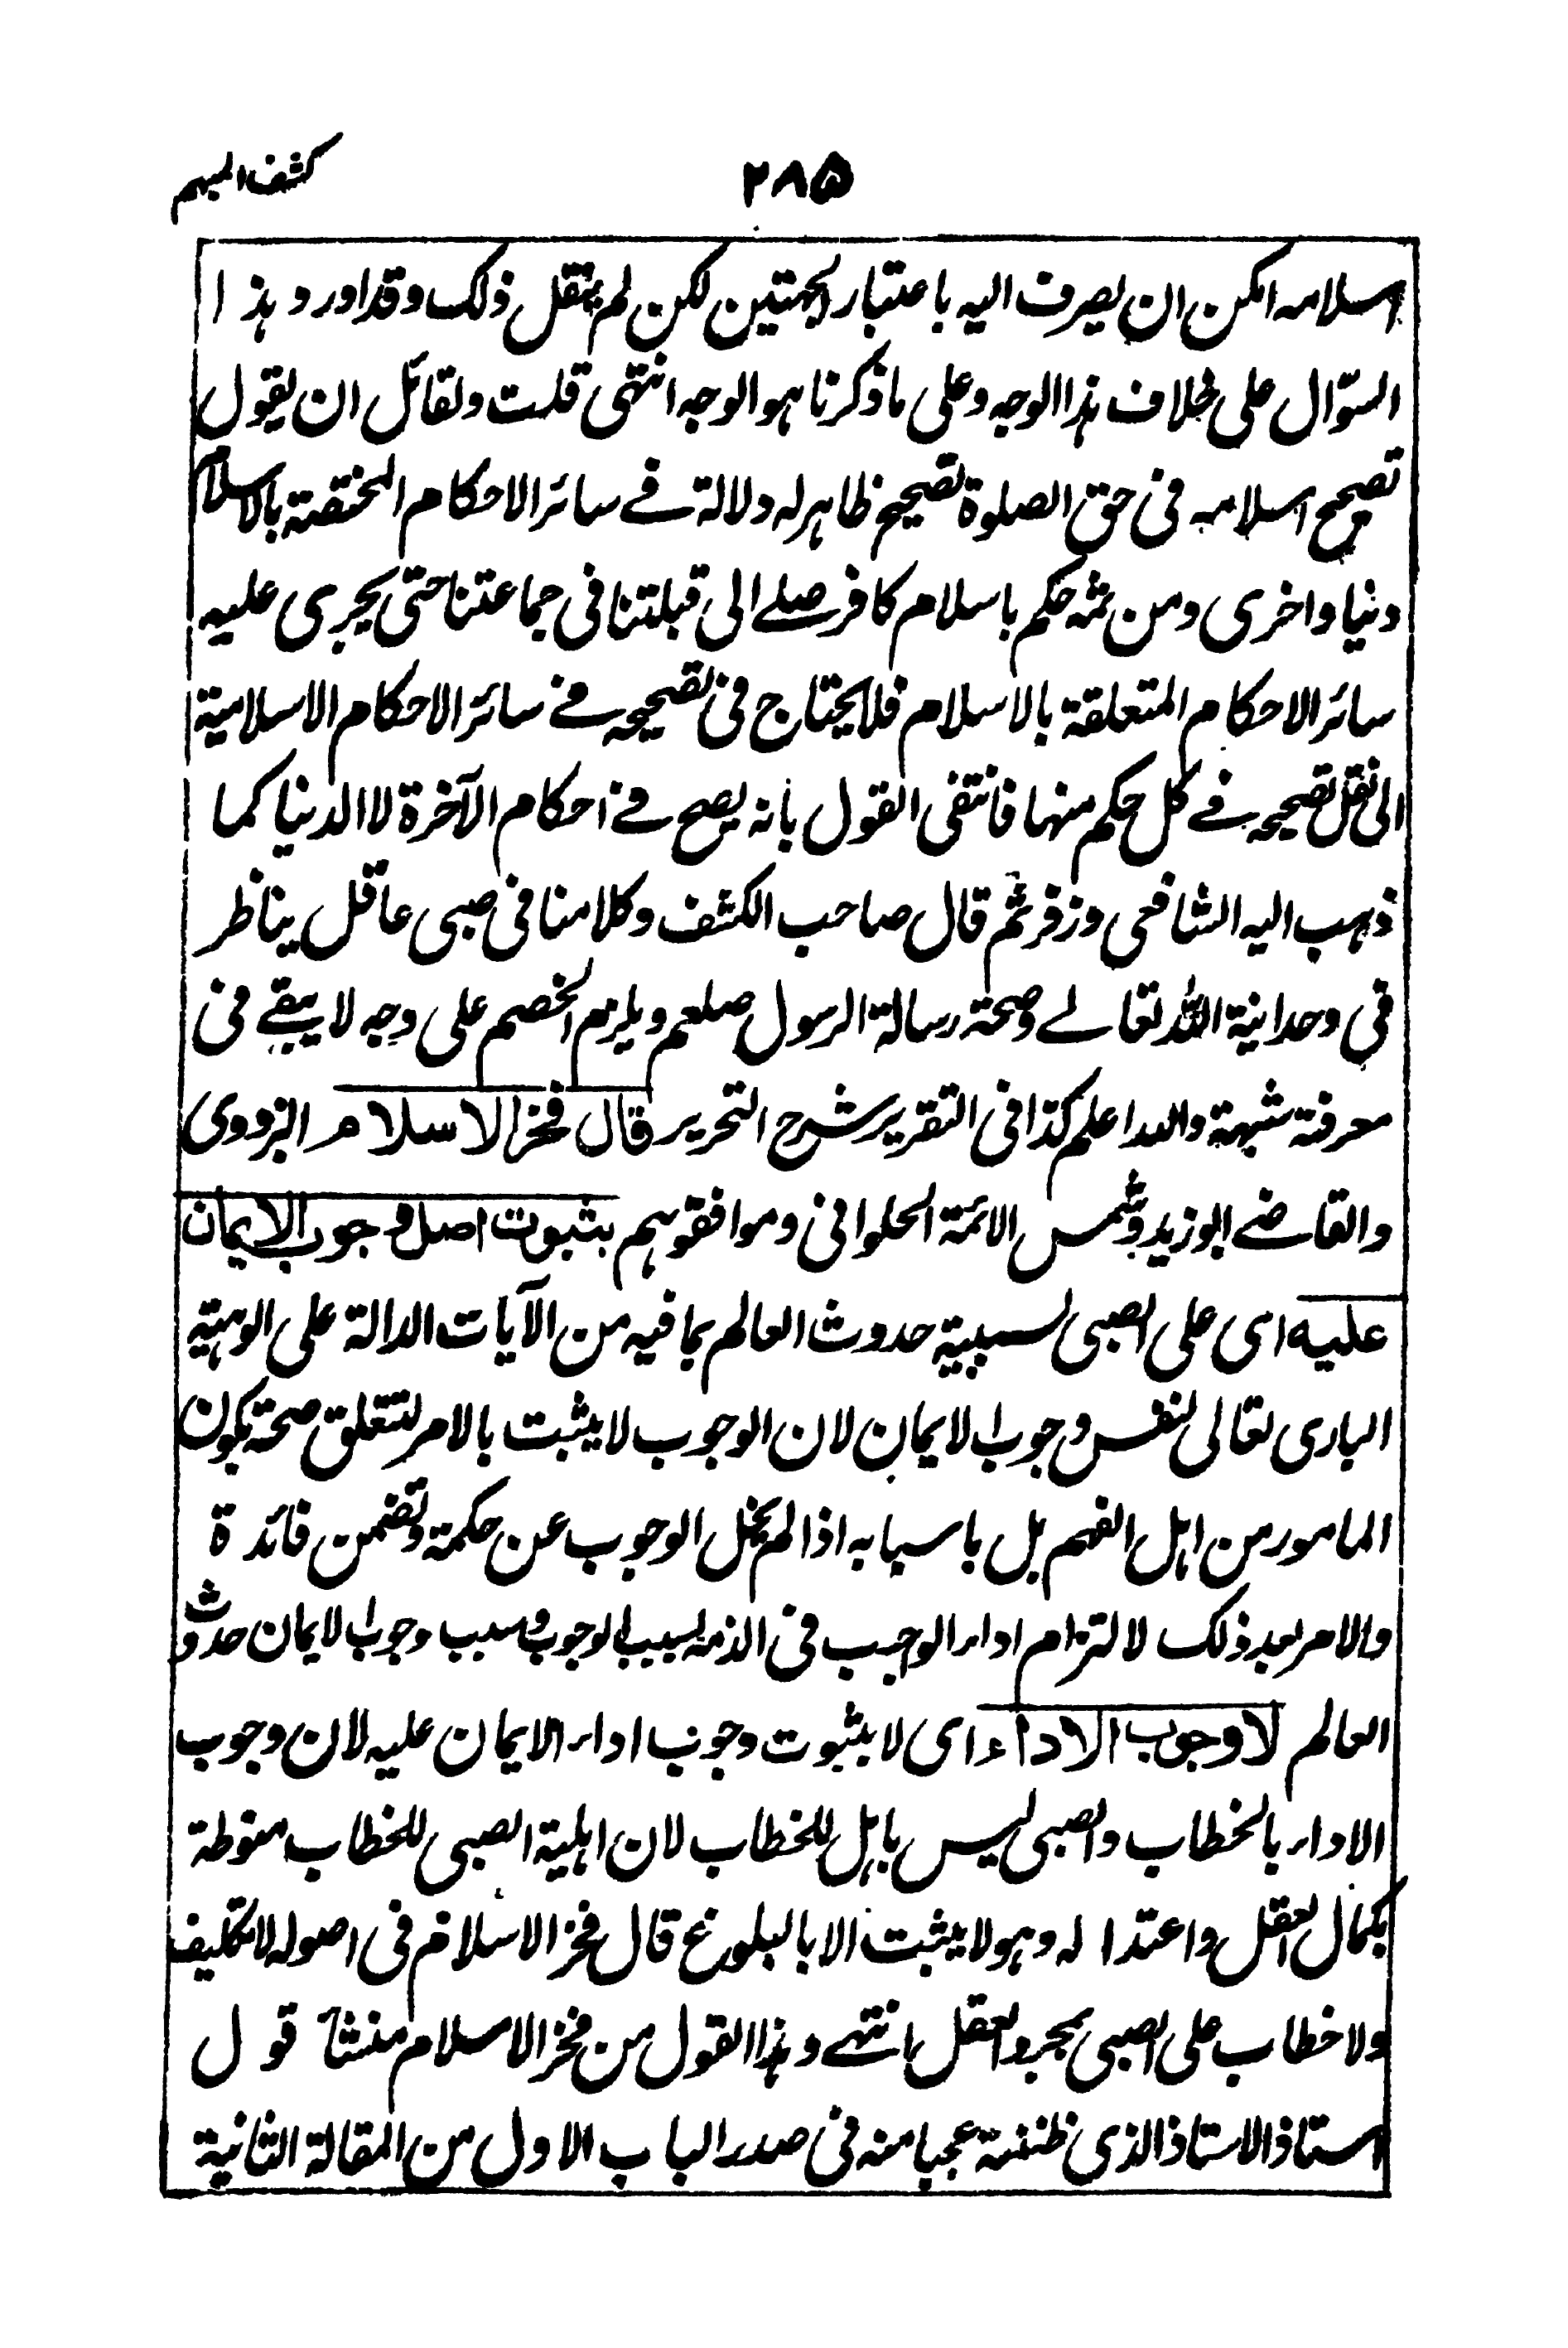 كشف المبهم
٢٨٥
اسلامه امكن ان يصرف اليه باعتبار الجهتين لكن لم ينقل ذلك وقد اورد هذا
السؤال على خلاف هذا الوجه وعلى ما ذكرنا هو الوجه انتهى قلت ولقائل ان يقول
تصحيح اسلامه فى حق الصلوة تصحيح ظاهر له دلالة فے سائر الاحكام المختصة بالاسلام
دنيا واخرى ومن ثمه حكم باسلام كافر صلے الى قبلتنا فى جماعتنا حتى يجرى عليه
سائر الاحكام المتعلقة بالاسلام فلا يحتاج فى تصحيحه فے سائر الاحكام الاسلامية
الى نقل تصحيحه فے كل حكم منها فانتفى القول بانه يصح فے احكام الآخرة لا الدنيا كما
ذهب اليه الشافعى وزفر ثم قال صاحب الكشف وكلامنا فى صبى عاقل يناظر
فى وحدانية الله تعالے وصحة رسالة الرسول صلعم ويلزم الخصم على وجه لا يبقے فى
معرفته شبهة والله اعلم كذا فى التقرير شرح التحرير قال فخر الاسلام البزدوى
والقاضے ابو زيد وشمس الائمة الحلوانى وموافقوهم بثبوت اصل وجوب الايمان
عليه اى على الصبى لسببية حدوث العالم بما فيه من الآيات الدالة على الوهية
البارى تعالى لنفس وجوب الايمان لان الوجوب لا يثبت بالامر لتتعلق صحة بكون
المامور من اهل الفهم بل باسبابه اذا لم يخل الوجوب عن حكمة وتضمن فائدة
والامر بعد ذلك لالتزام اداء الواجب فى الذمه بسبب الوجوب وسبب وجوب الايمان حدوث
العالم لا وجوب الاداء اى لا بثبوت وجوب اداء الايمان عليه لان وجوب
الاداء بالخطاب والصبى ليس باهل للخطاب لان اهلية الصبى للخطاب منوطة
بكمال العقل واعتداله وهو لا يثبت الا بالبلوغ قال فخر الاسلام فى اصوله لا تكليف
ولا خطاب على الصبى بمجرد العقل انتهے وهذا القول من فخر الاسلام منشأ قول
استاذ الاستاذ الذى ظننته عجبا منه فى صدر الباب الاول من المقالة الثانية